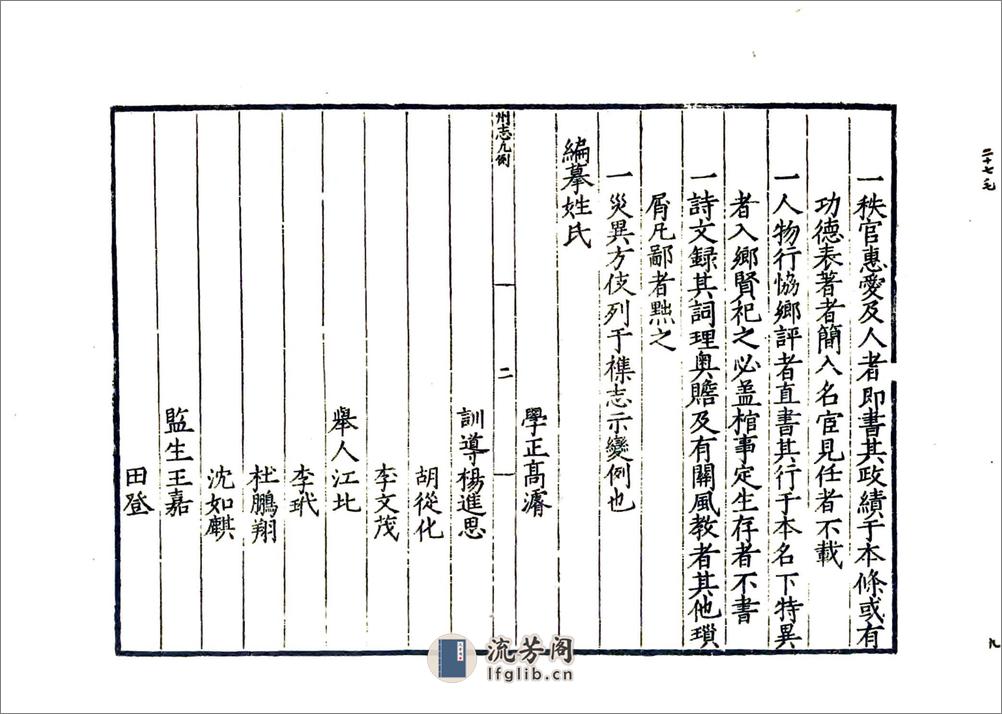 一秩官惠愛及人者即書其政績于本條或有
功德表著者簡入名宦見任者不載
一人物行恊鄉評者直書其行于本名下特異
者入鄉賢祀之必葢棺事定生存者不書
一詩文録其詞理奥贍及有關風教者其他瑣
屑凡鄙者黜之
一災異方伎列于襍志示變例也
編摹姓氏
學正高濬
州志凡例
二
訓導楊進思
胡從化
李文茂
舉人江北
李玳
杜鵬翔
沈如麒
監生王嘉
田登
二十七
九
流芳阁
lfglib.cn